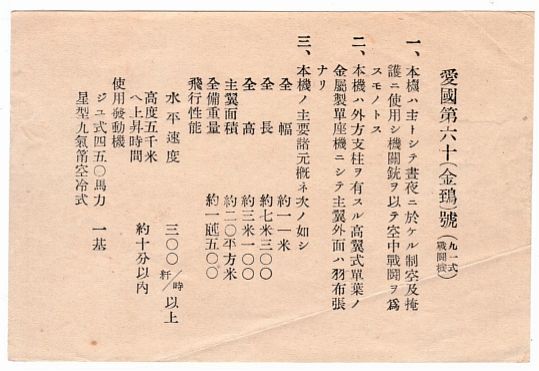 愛國第六十(金鵄)號(九一式戰鬪機)
一、本機ハ主トシテ晝夜ニ於ケル制空及掩
護ニ使用シ機關銃ヲ以テ空中戰鬪ヲ爲
スモノトス
二、本機ハ外方支柱ヲ有スル高翼式單葉ノ
金屬製單座機ニシテ主翼外面ハ羽布張
ナリ
三、本機ノ主要諸元概ネ次ノ如シ
全幅 約一一米
全長 約七米三〇〇
全高 約三米一〇〇
主翼面積 約二〇平方米
全備重量 約一瓲五〇〇
飛行性能
水平速度 三〇〇粁/時以上
高度五千米
ヘ上昇時間 約十分以內
使用發動機
ジユ式四五〇馬力 一基
星型九氣筩空冷式